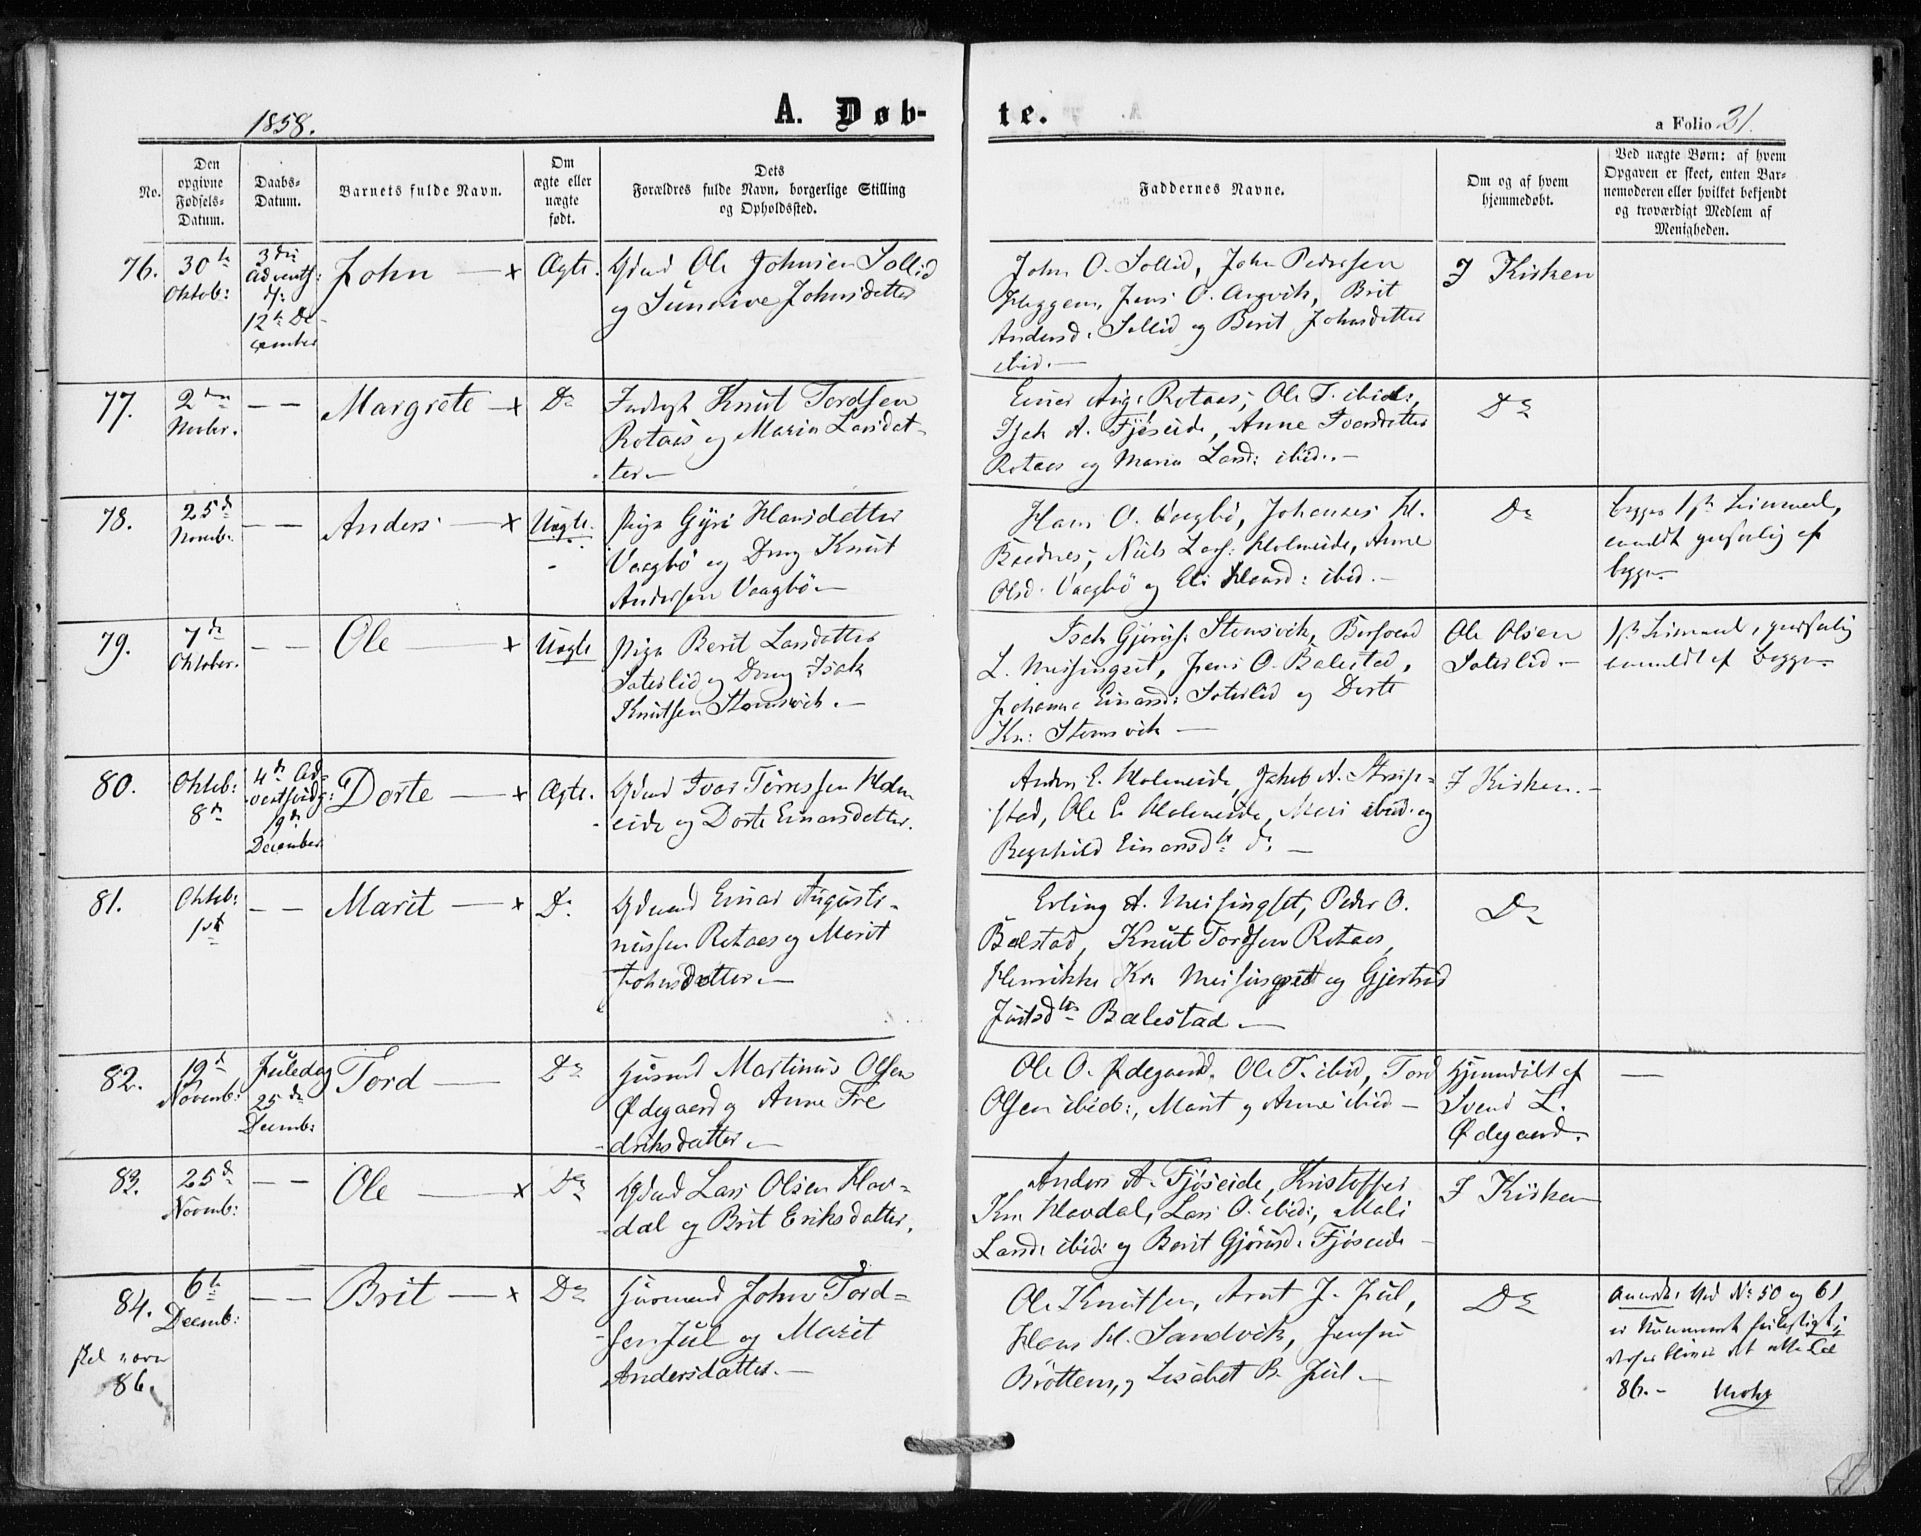 1858.
A. Døb-
te.
a Folio 31.
No.
Den opgivne Fødsels-Datum.
Daabs-Datum.
Barnets fulde Navn.
Om ægte eller uægte født.
Dets
Forældres fulde Navn, borgerlige Stilling
og Opholdssted.
Faddernes Navne.
Om og af hvem
hjemmedøbt.
Ved uægte Børn: af hvem
Opgaven er skeet, enten Bar-
nemoderen eller hvilket bekjendt
og troværdigt Medlem af
Menigheden.
76.
30te
Oktob:
3die
Advents:
d:
12te De-
cember
John — x
Ægte.
Gdmd Ole Johnsen Sollid
og Sunnive Johnsdatter
John O. Sollid, John Pedersen
Heggem, Jens O. Angvik, Brit
Andersd. Sollid og Berit Johnsdatter
ibid. —
I Kirken
77.
2den
Novbr.
— —
Margrete — x
Do
Knut Tordsen
Rotaas og Marin Larsdat-
ter —
Einar Aug: Rotaas, Ole T. ibid:,
Isak A. Fjøseide, Anne Ivarsdatter
Rotaas og Marin Larsd: ibid. —
Do
78.
25de
Novb.
— —
Anders — x
Uægte.
Pige Gyri Hansdatter
Vaagbø og Dreng Knut
Andersen Vaagbø —
Hans O. Vaagbø, Johannes H.
Boednes, Niels Lars: Holmeide, Anne
Olsd. Vaagbø og Eli Hansd: ibid. —
Do
begges 1ste Leiermaal,
anmeldt
begge.
79.
7de
Oktober.
— —
Ole — x
Uægte
Pige Berit Larsdatter
Saterlid og Dreng Isak
Knutsen Stensvik. —
Isak Gjørits: Stensvik, Bersvend
L. Meisingset, Jens O. Bælestad,
Johanna Einarsd: Saterlid og Dorte
Kn: Stensvik —
Ole Olsen
Saterlid —
1ste Leiermaal,
anmeldt af begge.
80.
Oktob:
8de
4de Ad-
ventsdg:
19de
December
Dorte — x
Ægte.
Gdmd Ivar Tørressen Holm
eide og Dorte Einarsdatter.
Anders E. Holmeide, Jakob A.
stad, Ole E. Holmeide, Mari ibid. og
Ragnhild Einarsdtr do —
I Kirken. —
81.
Oktob:
1ste
— —
Marit — x
Do
Gdmand Einar Augusti-
nussen Rotaas og Marit
Johnsdatter. —
Erling A. Meisingset, Peder O.
Bælstad, Knut Tordsen Rotaas,
Henrikke Kr. Meisingset og Gjertrud
Justsdtr Bælestad —
Do
82.
19de
Novemb:
Juledag
25de
Decemb:
Tord —
Do
Husmd Martinus Olsen
Ødegaard og Anne Fre
driksdatter. —
Ole O. Ødegaard, Ole T. ibid, Tord
Olsen ibid:, Marit og Anne ibid —
Hjemdøbt af
Svend L.
Ødegaard.
—
83.
25de
Novemb:
— —
Ole — x
Do
Gdmd Lars Olsen Hav-
dal og Brit Eriksdatter.
Anders A. Fjøseide, Kristoffer
Kn. Havdal, Lars O. ibid:, Mali
Larsd: ibid: og Berit Gjøritsd. Fjøseide —
I Kirken
84.
skal være
86.
6te
Decemb:
— —
Brit — x
Do
Husmand John Tord-
sen Jul og Marit
Andersdatter. —
Ole Knutsen, Arnt J. Jul,
Hans H. Sandvik,
Brøttem, og Lisabet B. Jul. —
Do
Anmrk. Ved No 50 og 61
er Nummeret feilagtigt;
derfor bliver det rette Tal
86. —